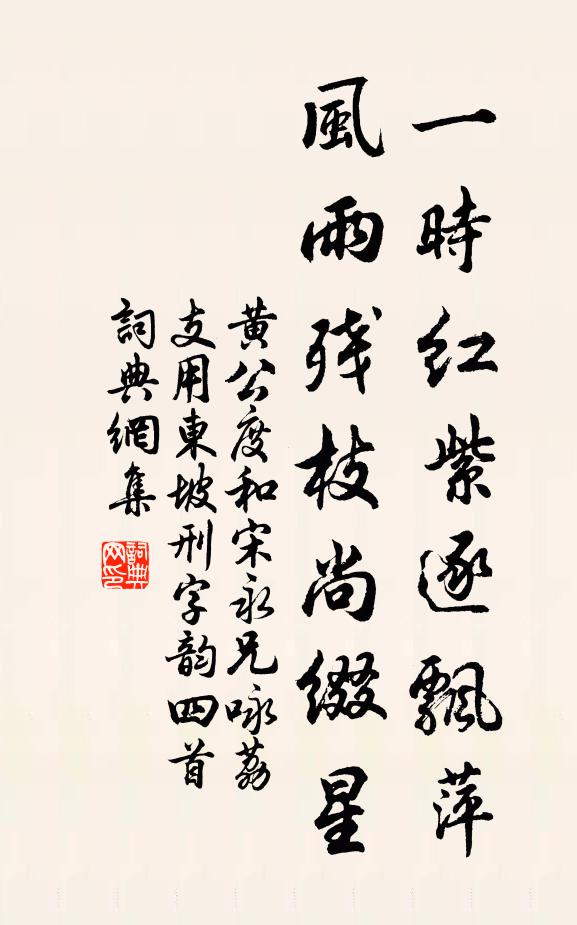 一時红紫逐飄萍
風雨残枝尚缀星
黄公度和宋永兄咏荔
支用東坡刑字韵四首
詞典網集
詞典网印